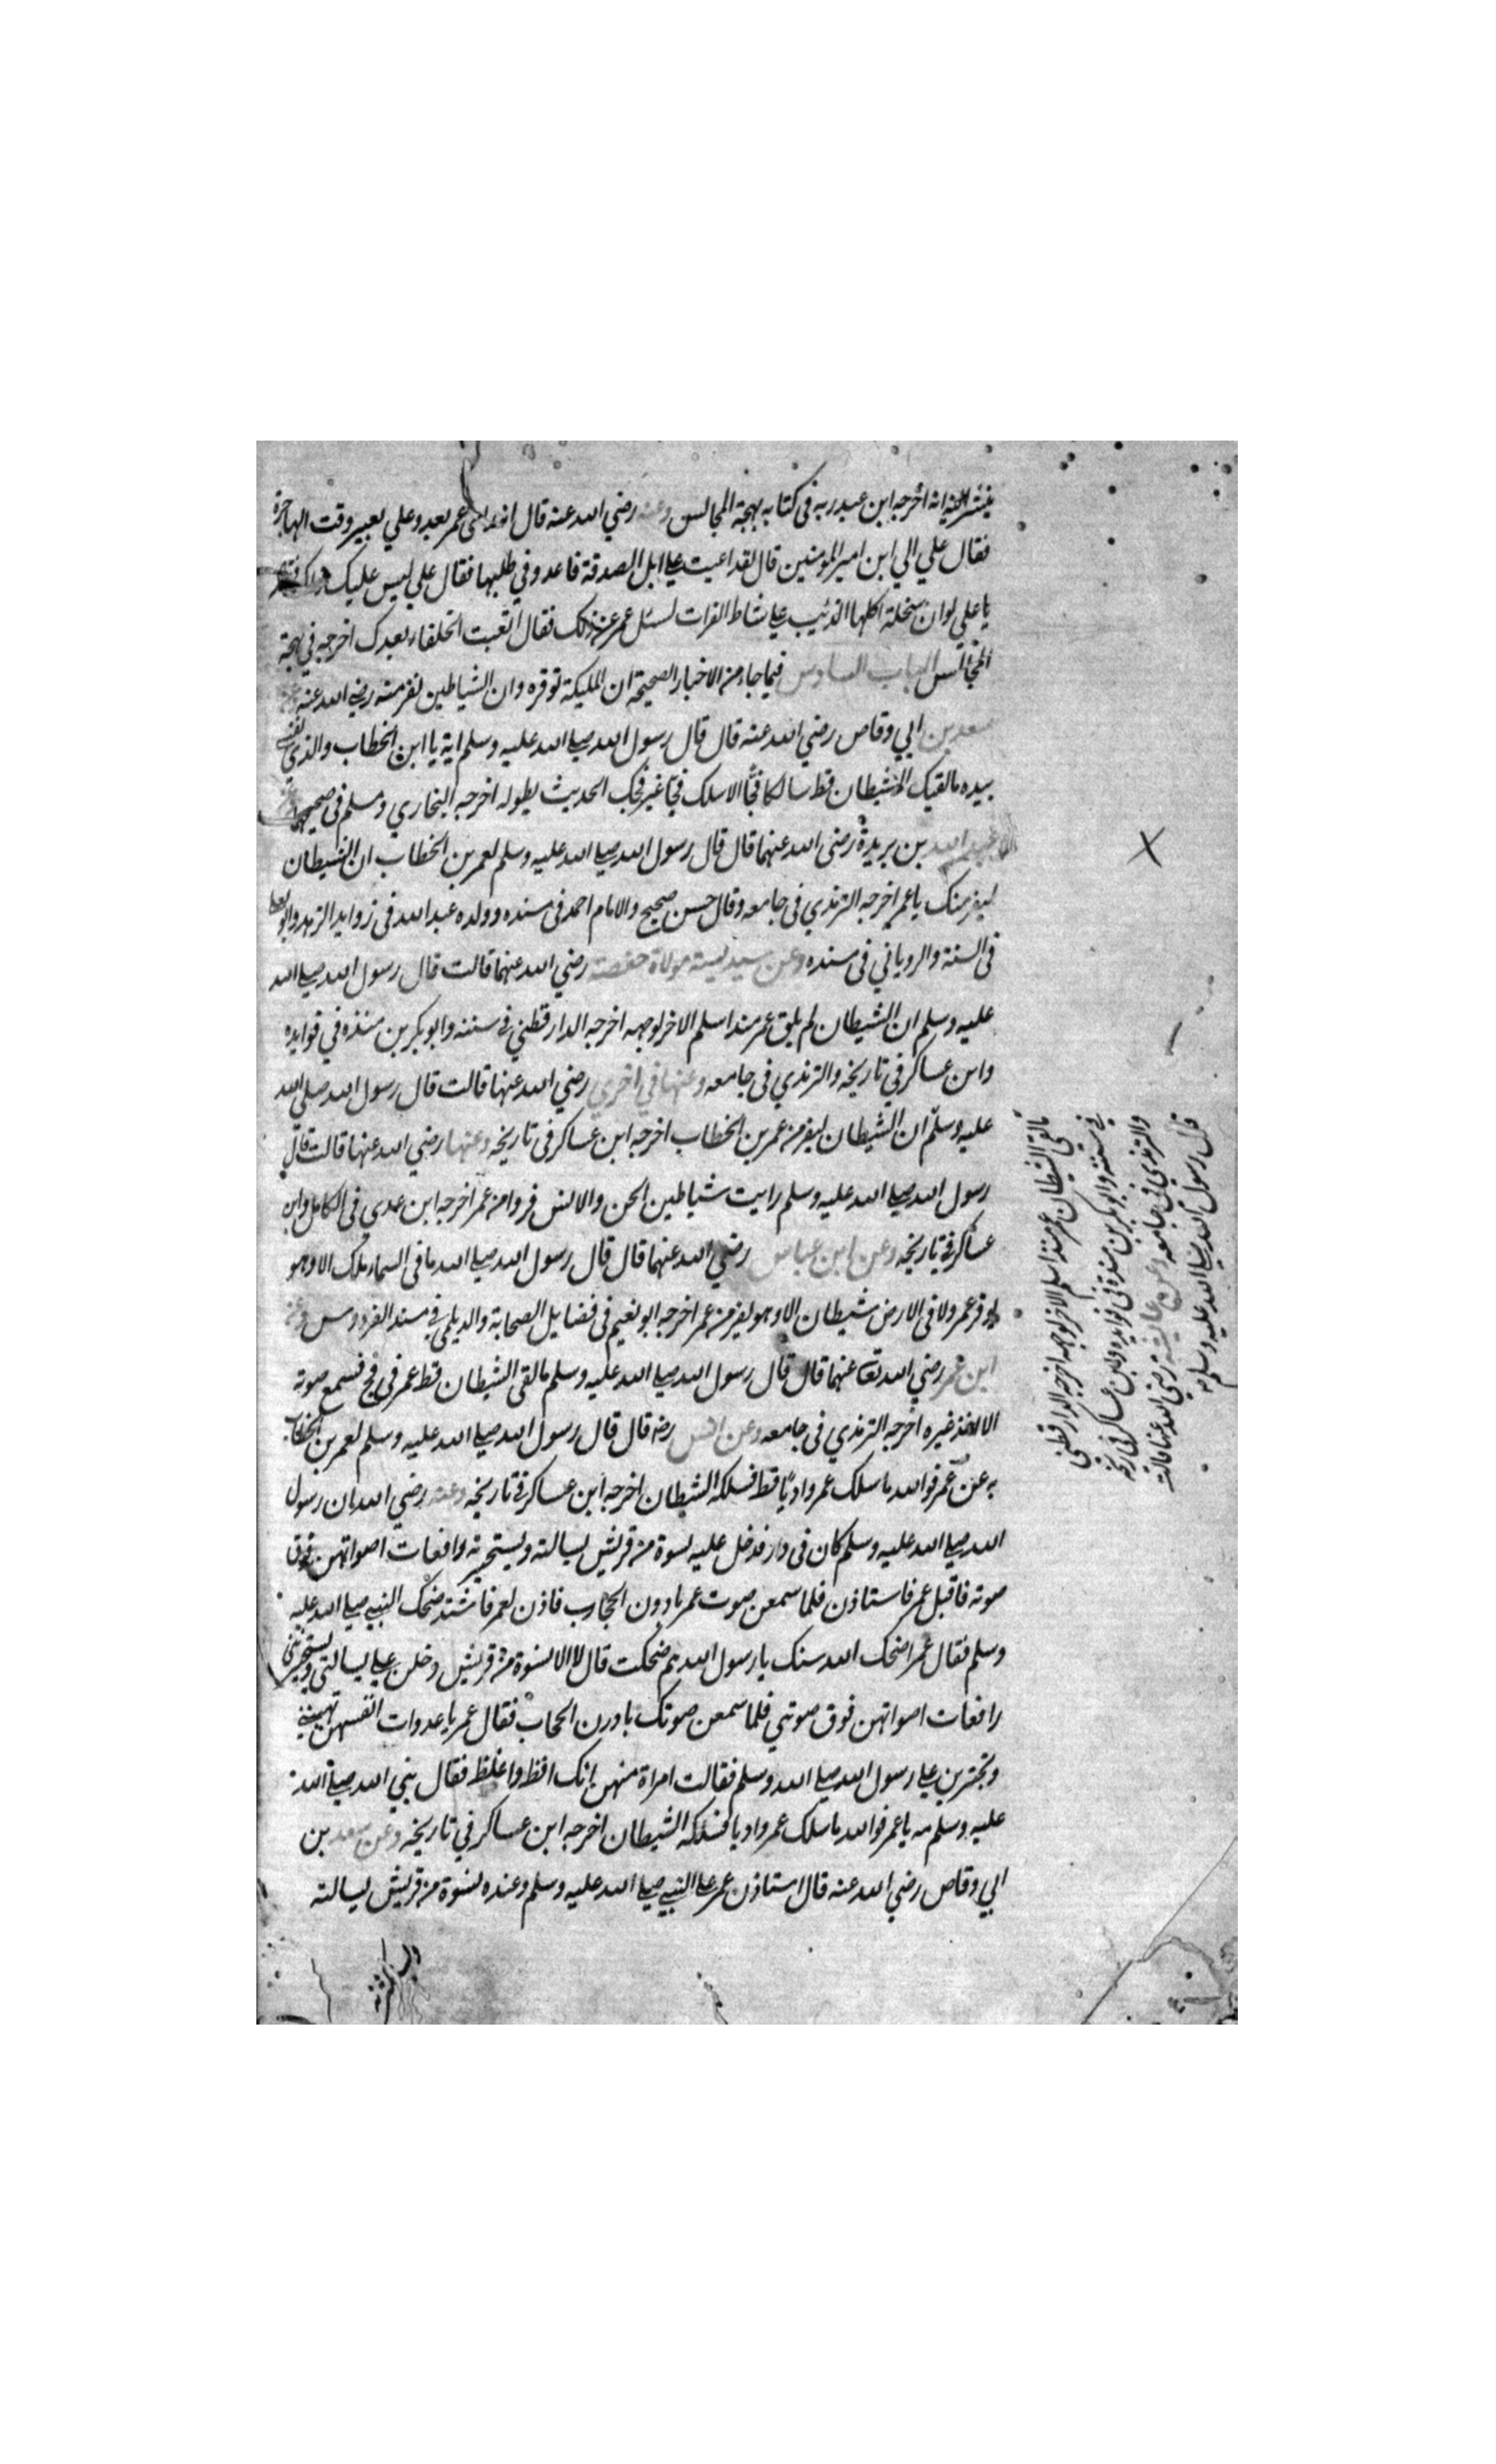 اخرجه ابن عبد ربه في كتابه بهجة المجالس وعنه رضي الله عنه قال عمر يعدو علي بعير وقت الهاجرة
فقال علي الي اين امير المومنين قال لقد اعيت علي ابل الصدقة فاعدو في طلبها فقال علي ليس عليك
يا علي لو ان سخلة اكلها الذئيب علي شاط الفرات لسئل عمر عن ذلك فقال اتعبت الخلفاء بعدك اخرجه في بهجة
المجالس الباب السادس فيما جاء من الاخبار الصحيحة ان المليكة توقره وان الشياطين تفر منه رضي الله عنه
سعد بن ابي وقاص رضي الله عنه قال قال رسول الله صلي الله عليه وسلم ايه يا ابن الخطاب والذي نفسي
بيده ما لقيك الشيطان قط سالكا فجّا الا سلك فجّا غير فجك الحديث بطوله اخرجه البخاري ومسلم في صحيحيهما
عبد الله بن بريدة رضي الله عنهما قال قال رسول الله صلي الله عليه وسلم لعمر بن الخطاب ان الشيطان
ليفر منك يا عمر اخرجه الترمذي في جامعه وقال حسن صحيح والامام احمد في مسنده وولده عبد الله في زوايد الزهد وابو
في السنة والروياني في مسنده وعن سديسة مولاة حفصة رضي الله عنهما قالت قال رسول الله صلي الله
عليه وسلم ان الشيطان لم يلق عمر منذ اسلم الا خر لوجهه اخرجه الدارقطني في سننه وابو بكر بن منده في فوايده
وابن عساكر في تاريخه والترمذي في جامعه وعنها في اخري رضي الله عنها قالت قال رسول الله صلي الله
عليه وسلّم ان الشيطان ليفر من عمر بن الخطاب اخرجه ابن عساكر في تاريخه وعنها رضي الله عنها قالت قال
رسول الله صلي الله عليه وسلم رايت شياطين الجن والانس فروا من عمر اخرجه ابن عدي في الكامل وابن
عساكر في تاريخه وعن ابن عباس رضي الله عنهما قال قال رسول الله صلي الله ما في السماء ملك الا وهو
يوقر عمر ولا في الارض شيطان الا وهو يفر من عمر اخرجه ابو نعيم في فضايل الصحابة والديلمي في مسند الفردوس وعن
ابن عمر رضي الله تعا عنهما قال قال رسول الله صلي الله عليه وسلم ما لقي الشيطان قط عمر في فج فسمع صوته
الا اخذ غيره اخرجه الترمذي في جامعه وعن انس رضه قال قال رسول الله صلي الله عليه وسلم لعمر بن الخطاب
عن عمر فوالله ما سلك عمر واديًا قط فسلكه الشيطان اخرجه ابن عساكر في تاريخه وعنه رضي الله ان رسول
الله صلي الله عليه وسلم كان في دار فدخل عليه نسوة من قريش يسالنه ويستخبرنه رافعات اصواتهن فوق
صوته فاقبل عمر فاستاذن فلما سمعن صوت عمر بادرن الحجاب فاذن لعمر فاشتد ضحك النبي صلي الله عليه
وسلم فقال عمر اضحك الله سنك يا رسول الله مم ضحكت قال لا الا نسوة من قريش دخلن علي يسالنني ويستخبرنني
رافعات اصواتهن فوق صوتي فلما سمعن صوتك بادرن الحجاب فقال عمر يا عدوات انفسهن تهبنني
وتجترين علي رسول الله صلي الله وسلم فقالت امراة منهن انك افظ واغلظ فقال نبي الله صلي الله
عليه وسلم مه يا عمر فوالله ما سلك عمر واديا فسلكه الشيطان اخرجه ابن عساكر في تاريخه وعن سعد بن
ابي وقاص رضي الله عنه قال استاذن عمر علي النبي صلي الله عليه وسلم وعنده نسوة من قريش يسالنه
ما لقي الشيطان عمر منذ اسلم الا خر لوجهه اخرجه الدارقطني
في سننه وابو بكر بن منده في فوايده وابن عساكر في تاريخه
والترمذي في جامعه وعن عايشة رضي الله عنها قالت
قال رسول الله صلي الله عليه وسلم